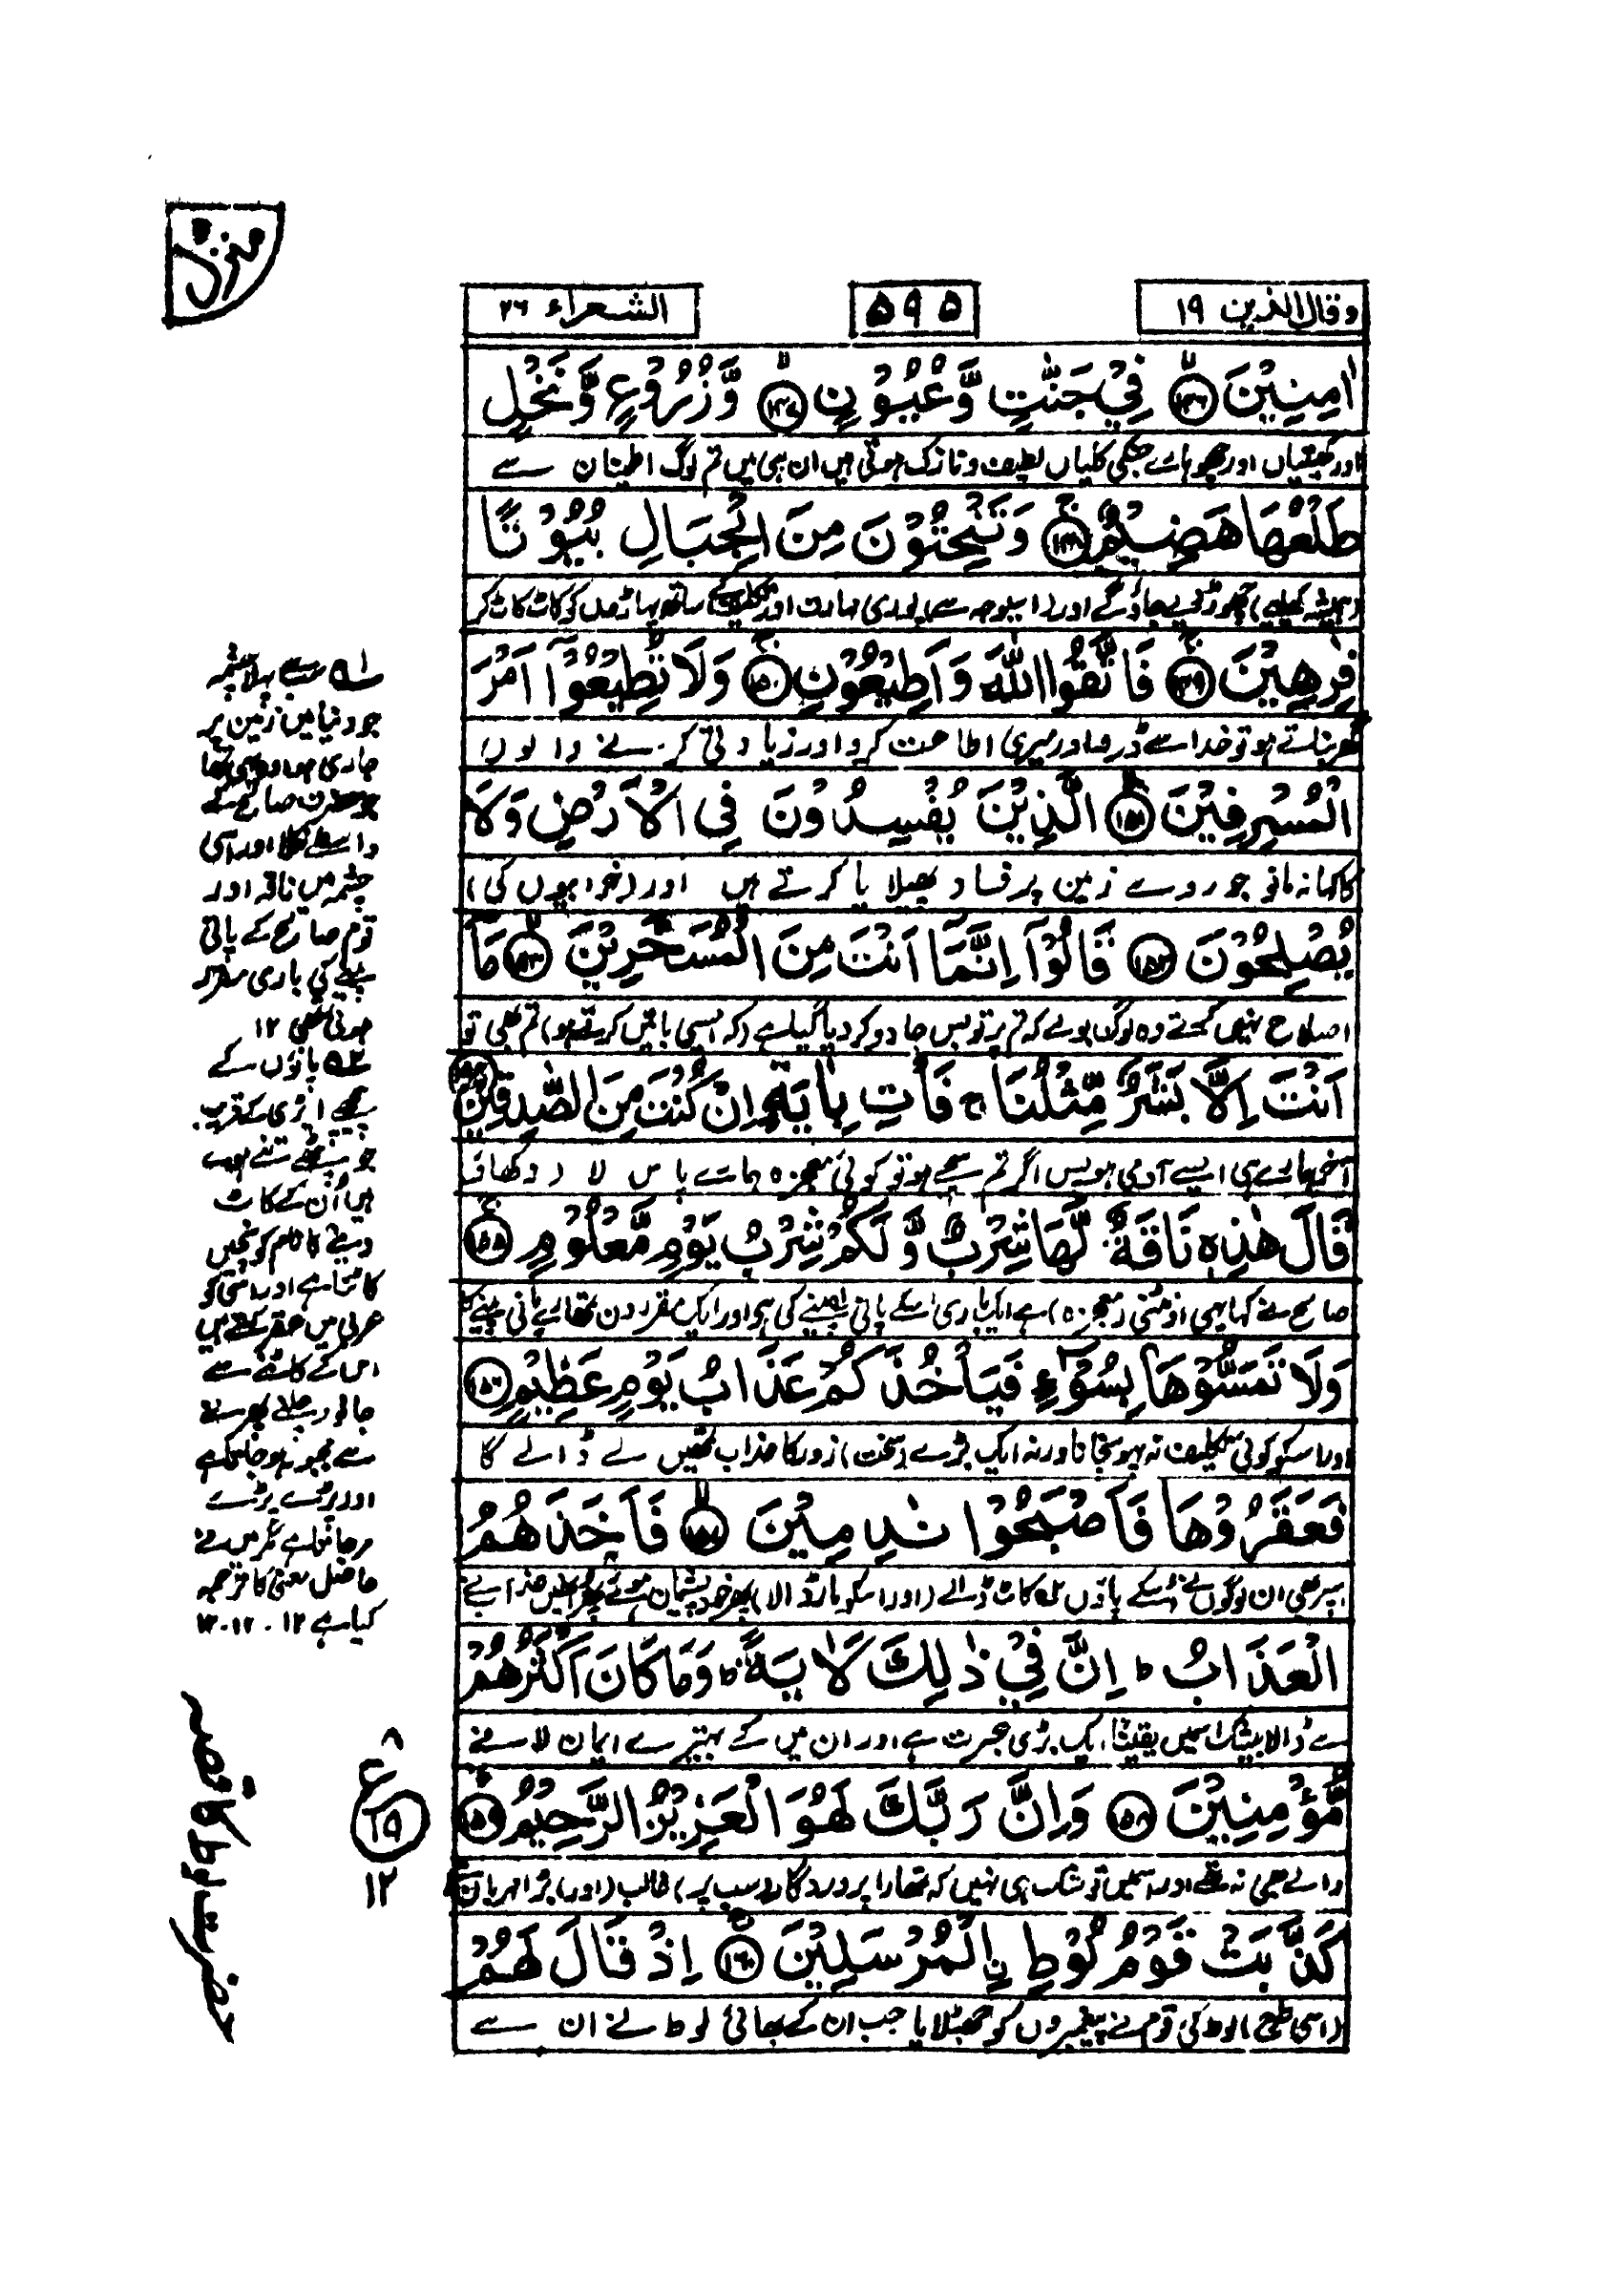 وقال الذین ۱۹
۵۹۵
الشعراء ۲۶
اٰمِنِيْنَ ﴿۱۴۶﴾ فِيْ جَنّٰتٍ وَّعُيُوْنٍ ﴿۱۴۷﴾ وَّزُرُوْعٍ وَّنَخْلٍ
اور کھیتیاں اور چھوہارے جنکی کلیاں لطیف و نازک ہوتی ہیں ان ہی میں تم لوگ اطمینان سے
طَلْعُهَا هَضِيْمٌ ﴿۱۴۸﴾ وَتَنْحِتُوْنَ مِنَ الْجِبَالِ بُيُوْتًا
(ہمیشہ کیلیے) چھوڑ دیے جاؤ گے اور (اسیوجہ سے) پوری مہارت اور تکلیف کے ساتھ پہاڑوں کو کاٹ کاٹ کر
فٰرِهِيْنَ ﴿۱۴۹﴾ فَاتَّقُوا اللّٰهَ وَاَطِيْعُوْنِ ﴿۱۵۰﴾ وَلَا تُطِيْعُوْٓا اَمْرَ
گھر بناتے ہو تو خدا سے ڈرو اور میری اطاعت کرو اور زیادتی کرنے والوں
الْمُسْرِفِيْنَ ﴿۱۵۱﴾ الَّذِيْنَ يُفْسِدُوْنَ فِى الْاَرْضِ وَلَا
کا کہا نہ مانو جو روے زمین پر فساد پھیلایا کرتے ہیں اور (خرابیوں کی)
يُصْلِحُوْنَ ﴿۱۵۲﴾ قَالُوْٓا اِنَّمَآ اَنْتَ مِنَ الْمُسَحَّرِيْنَ ﴿۱۵۳﴾ مَآ
اصلاح نہیں کرتے وہ لوگ بولے کہ تم پر تو بس جادو کر دیا گیا ہے (کہ ایسی باتیں کرتے ہو) تم بھی تو
اَنْتَ اِلَّا بَشَرٌ مِّثْلُنَا ۚ فَاْتِ بِاٰيَةٍ اِنْ كُنْتَ مِنَ الصّٰدِقِيْنَ ﴿۱۵۴﴾
آخر ہمارے ہی ایسے آدمی ہو پس اگر تم سچے ہو تو کوئی معجزہ ہمارے پاس لا دکھاؤ
قَالَ هٰذِهٖ نَاقَةٌ لَّهَا شِرْبٌ وَّلَكُمْ شِرْبُ يَوْمٍ مَّعْلُوْمٍ ﴿۱۵۵﴾
صالح نے کہا یہی اونٹنی (معجزہ) ہے ایک باری اسکے پانی پینے کی ہو اور ایک مقرر دن تمھارے پانی پینے کا
وَلَا تَمَسُّوْهَا بِسُوْٓءٍ فَيَاْخُذَكُمْ عَذَابُ يَوْمٍ عَظِيْمٍ ﴿۱۵۶﴾
اور اسکو کوئی تکلیف نہ پہونچانا ورنہ ایک بڑے (سخت) زور کا عذاب تمھیں لے ڈالے گا
فَعَقَرُوْهَا فَاَصْبَحُوْا نٰدِمِيْنَ ﴿۱۵۷﴾ فَاَخَذَهُمُ
اسپر بھی ان لوگوں نے اسکے پاؤں کاٹ ڈالے (اور اسکو مار ڈالا) پھر خود پشیمان ہوئے پھر انھیں عذاب نے
الْعَذَابُ ؕ اِنَّ فِيْ ذٰلِكَ لَاٰيَةً ؕ وَمَا كَانَ اَكْثَرُهُمْ
لے ڈالا بیشک اسمیں یقیناً ایک بڑی عبرت ہے اور ان میں کے بہتیرے ایمان لانے
مُّؤْمِنِيْنَ ﴿۱۵۸﴾ وَاِنَّ رَبَّكَ لَهُوَ الْعَزِيْزُ الرَّحِيْمُ ﴿۱۵۹﴾
والے بھی نہ تھے اور اسمیں تو شک ہی نہیں کہ تمھارا پروردگار (سب پر) غالب (اور) بڑا مہربان ہے
كَذَّبَتْ قَوْمُ لُوْطِ ࣙالْمُرْسَلِيْنَ ﴿۱۶۰﴾ اِذْ قَالَ لَهُمْ
(اسی طرح) لوط کی قوم نے پیغمبروں کو جھٹلایا جب ان کے بھائی لوط نے ان سے
۱؎ سب سے پہلا چشمہ
جو دنیا میں زمین پر
جاری ہوا وہ یہی تھا
جو حضرت صالح کے
واسطے نکلا اور اسی
چشمہ میں ناقہ اور
قوم صالح کے پانی
پینے کی باری مقرر
ہوئی تھی ۱۲
۲؎ پاؤں کے
پیچھے ایڑی کے قریب
جو پٹھے تنے ہوے
ہیں اُن کے کاٹ
دینے کا نام کونچیں
کاٹنا ہے اور اسی کو
عربی میں عقر کہتے ہیں
اس کے کاٹنے سے
جانور چلنے پھرنے
سے مجبور ہو جاتا ہے
اور پڑے پڑے
مر جاتا ہے مگر میں نے
حاصل معنی کا ترجمہ
کیا ہے ۱۲
۸
ع
۱۹
۱۲
حضرت لوط کا قصہ